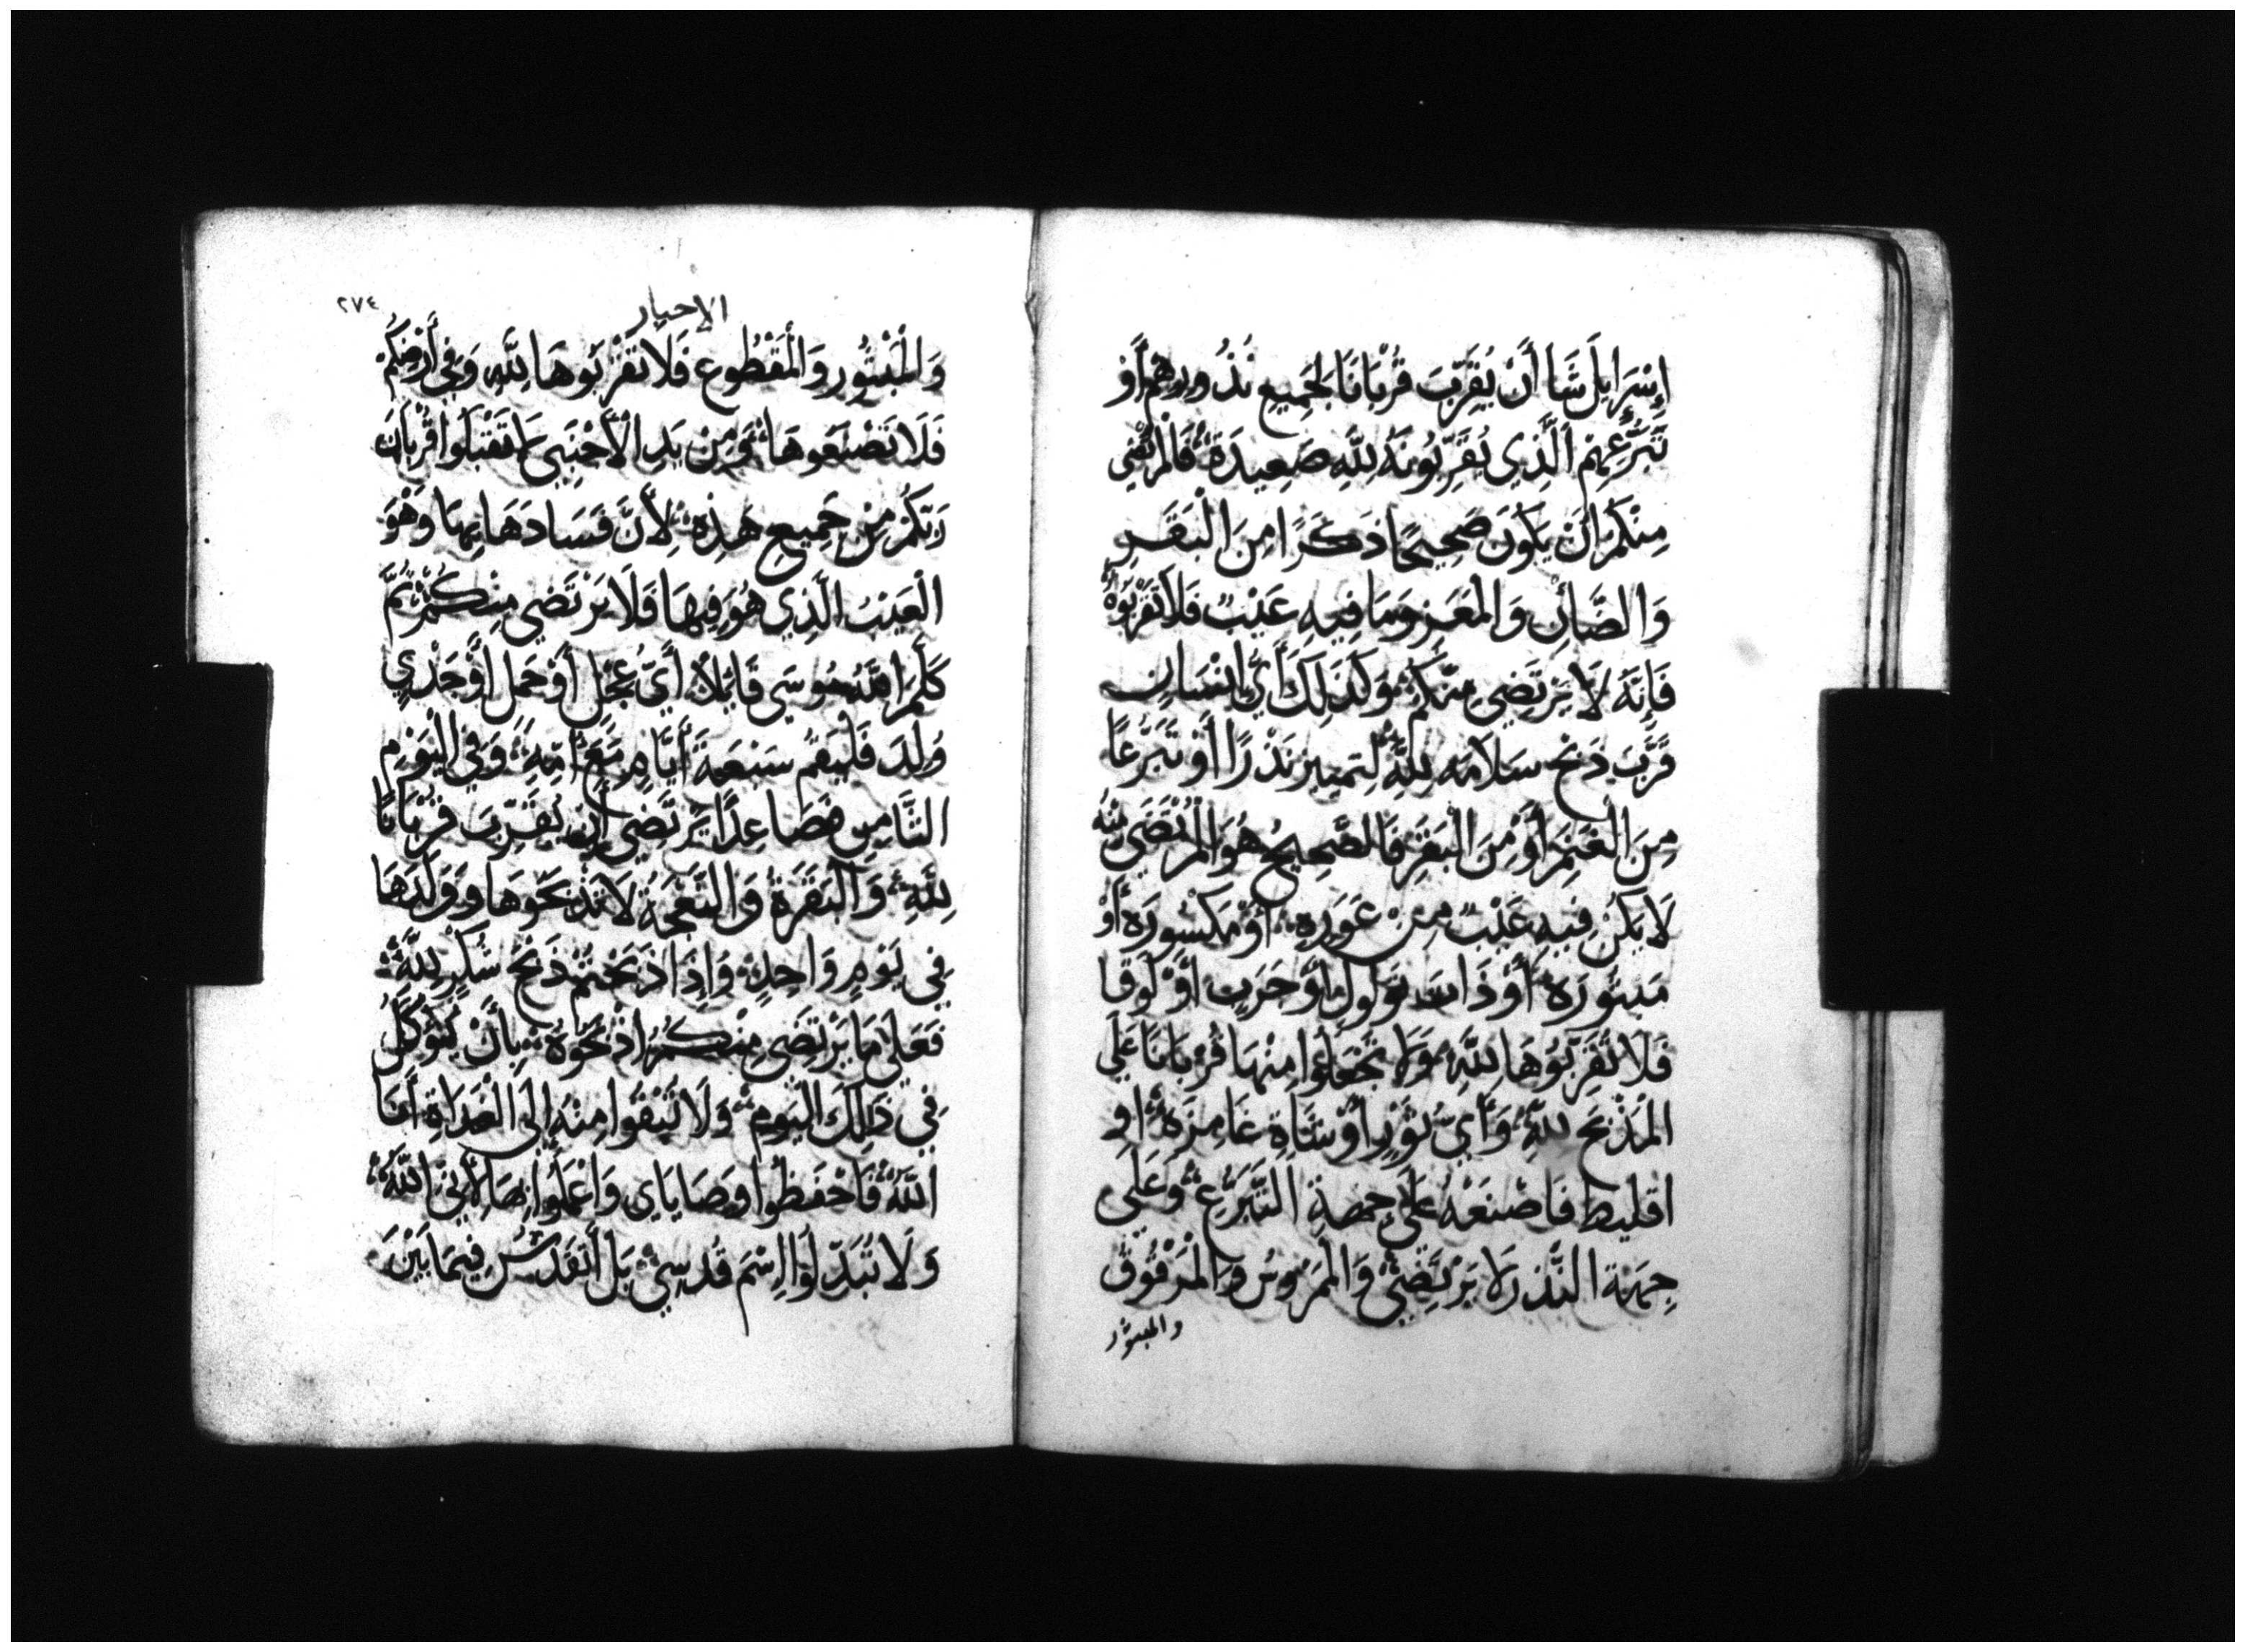 إِسْرَايِلَ شَاَ أَنْ يُقَرِّبَ قُرْبَانًا لِجَمِيعِ نُذُورِهِمْ أَوْ
تَبَرُّعِهِمْ الَّذِي يُقَرِّبُونَهُ لِلَّهِ صَعِيدَةً فَالْمُرْتَضَي
مِنْكُمْ أَنْ يَكُونَ صَحِيحًا ذَكَرًا مِنَ الْبَقَرِ
وَالضَّأنِ وَالْمَعَزِ وَمَا فِيهِ عَيْبٌ فَلَا تُقَرِّبُوهُ
فَإِنَّهُ لَا يَرْتَضِي مِنْكُمْ وَكَذَلِكَ أَيُّ إِنْسَانٍ
قَرَّبَ ذَبْحَ سَلَامَه لِلَّهِ لِتَمييز نَذْرًا أَوْ تَبَرُّعًا
مِنَ الْغَنَمِ أَوْ مِنَ الْبَقَرِ فَالصَّحِيحُ هُوَ الْمُرْتَضَي مِنْهُ
لَا يَكُنْ فِيهِ عَيْبٌ مِنْ عَوَرِهِ أَوْ مَكْسُورَهِ أَوْ
مَبْتُورَه أَوْ ذَات ثولول أَوْ جَرَبٍ أَوْ لَوقَا
فَلَا تُقَرِّبُوهَا لِلَّهِ وَلَا تَجْعَلُوا مِنْهَا قُرْبَانًا عَلَي
الْمَذْبَحِ لِلَّهِ وَأَيُّ ثَوْرٍ أَوْ شَاةٍ غَامِزَةٍ اوِ
اقليط فَاصْنَعْهُ عَلَي جِهَةِ التَّبَرُّعِ وَعَلَي
جِهَة النَّذْرِ لَا يَرْتَضِي وَالْمَرْوس وَالْمَرْقُوق
والمبتور
٢٧٤
الاحبار
وَالْمَبْتُورِ وَالْمَقْطُوعِ فَلَا تُقَرِّبُوهَا لِلَّهِ وَفِي أَرْضِكُمْ
فَلَا تَصْنَعُوهَا وَمِنْ يَدِ الْأَجْنَبِي لَا تَقْبَلُوا قُرْبَانَ
رَبِّكُمْ مِنْ جَمِيعِ هَذِهِ لِأَنَّ فَسَادَهَا بِهَا وَهُوَ
الْعَيْبُ الَّذِي هُوَ فِيهَا فَلَا يَرْتَضِي مِنْكُمْ ثُمَّ
كَلَّمَ اللَّهُ مُوسَي قَايِلًا أَيُّ عِجْلٍ أَوْ حَمَلٍ أَوْ جَدْيٍ
وُلِدَ فَلْيَقُمْ سَبْعَةَ أَيَّامٍ مَعَ أُمِّهِ وَفِي الْيَوْمِ
الثَّامِنِ فَصَاعِدًا يَرْتَضِي أَنْ يُقَرَّبَ قُرْبَانًا
لِلَّهِ وَالْبَقَرَةُ وَالنَّعْجَةُ لَا تَذْبَحُوهَا وَوَلَدَهَا
فِي يَوْمٍ وَاحِدٍ وَإِذَا ذَبَحْتُمْ ذَبْحَ شُكْرٍ لِلَّهِ
فَعَلَي مَا يَرْتَضِي مِنْكُمْ اذْبَحُوهُ بِأَنْ يُؤْكَلَ
فِي ذَلِكَ الْيَوْمِ وَلَا تُبْقُوا مِنْهُ إِلَي الْغَدَاةِ أَنَا
اللَّهُ فَاحْفَظُوا وَصَايَايَ وَاعْمَلُوا بِهَا لِأَنِّي اللَّهُ
وَلَا تُبَدِّلُوا اسْمَ قُدسِي بَل أَتَقَدَّسُ فِيمَا بَيْنَ